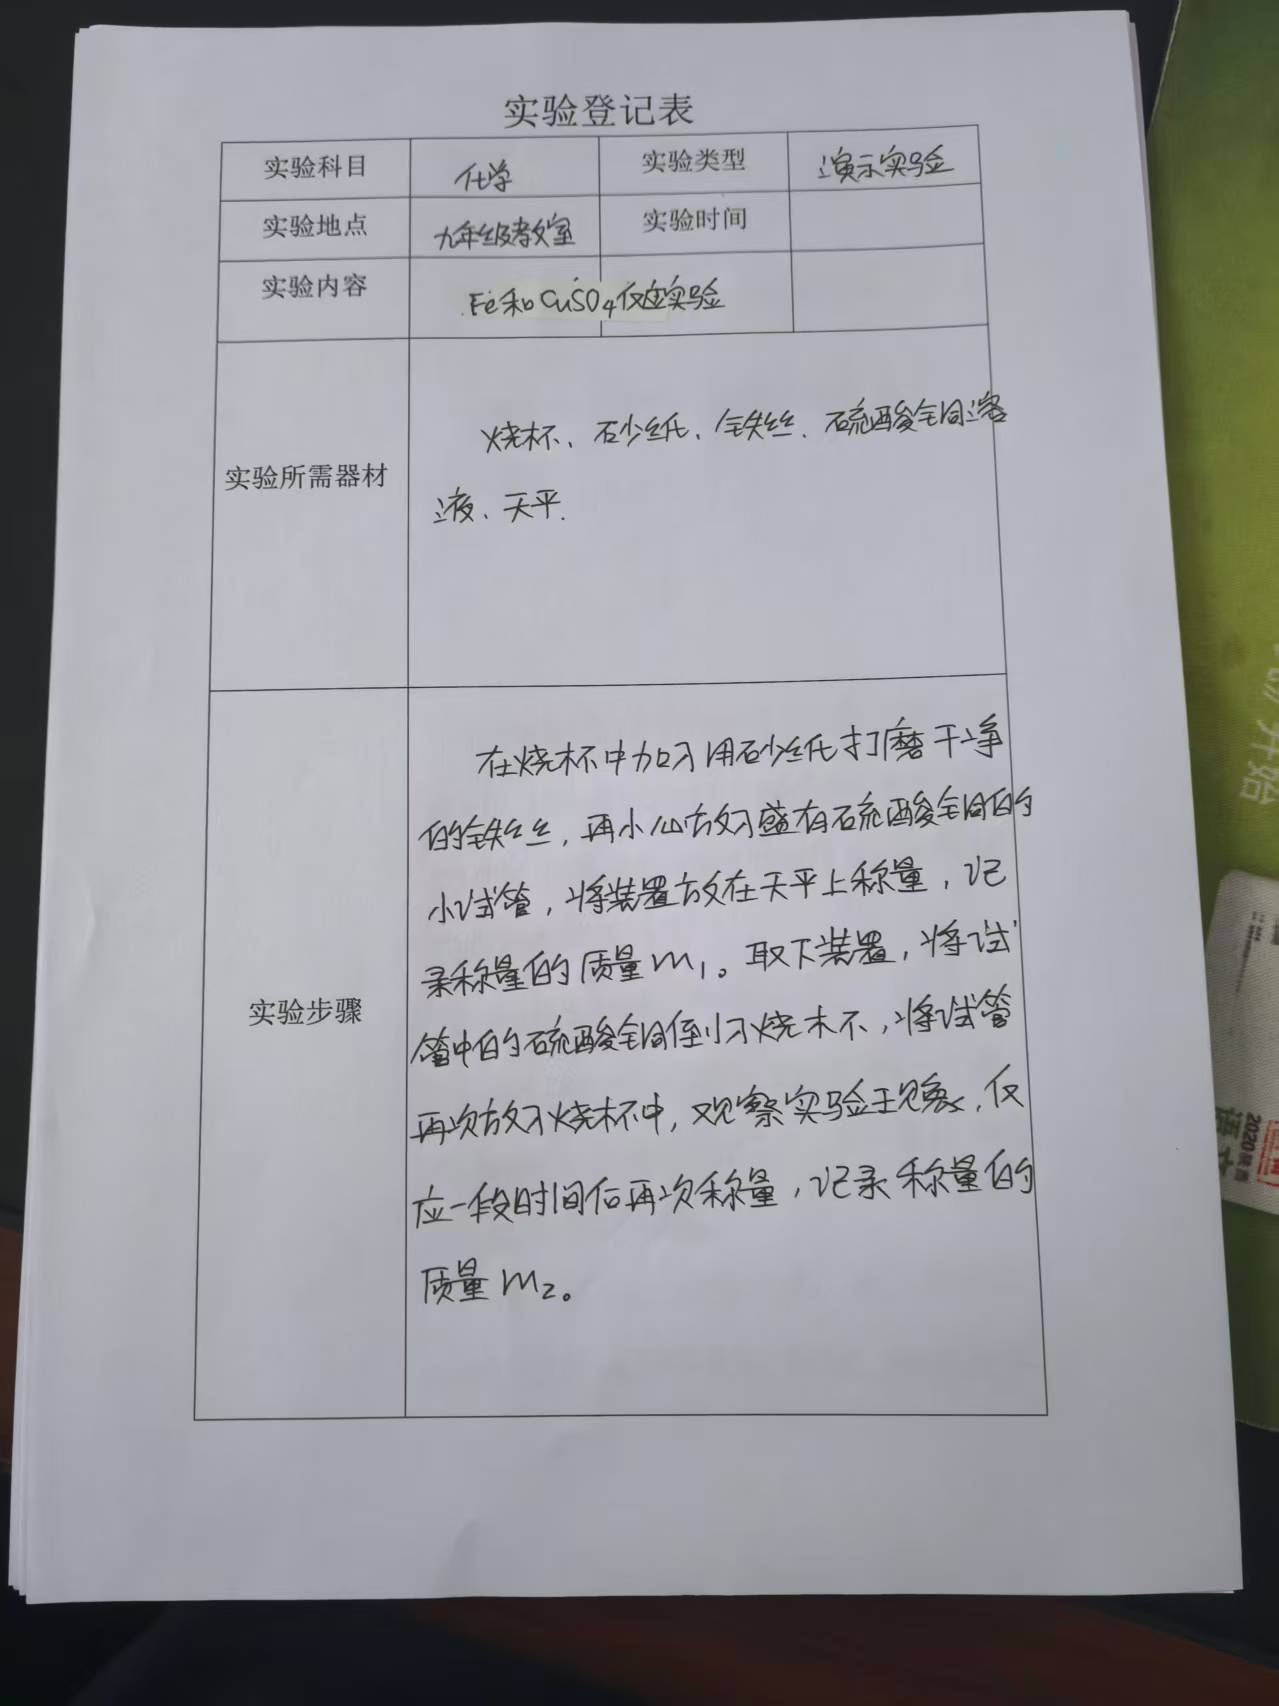 实验登记表
实验科目 化学 实验类型 演示实验
实验地点 九年级教室 实验时间
实验内容 Fe和CuSO4反应实验
实验所需器材
烧杯、砂纸、铁丝、硫酸铜溶
液、天平.
实验步骤
在烧杯中加入用砂纸打磨干净
的铁丝,再小心放入盛有硫酸铜的
小试管,将装置放在天平上称量,记
录称量的质量m1。取下装置,将试
管中的硫酸铜倒入烧杯,将试管
再次放入烧杯中,观察实验现象,反
应一段时间后再次称量,记录称量的
质量m2。
开始
2020
语文